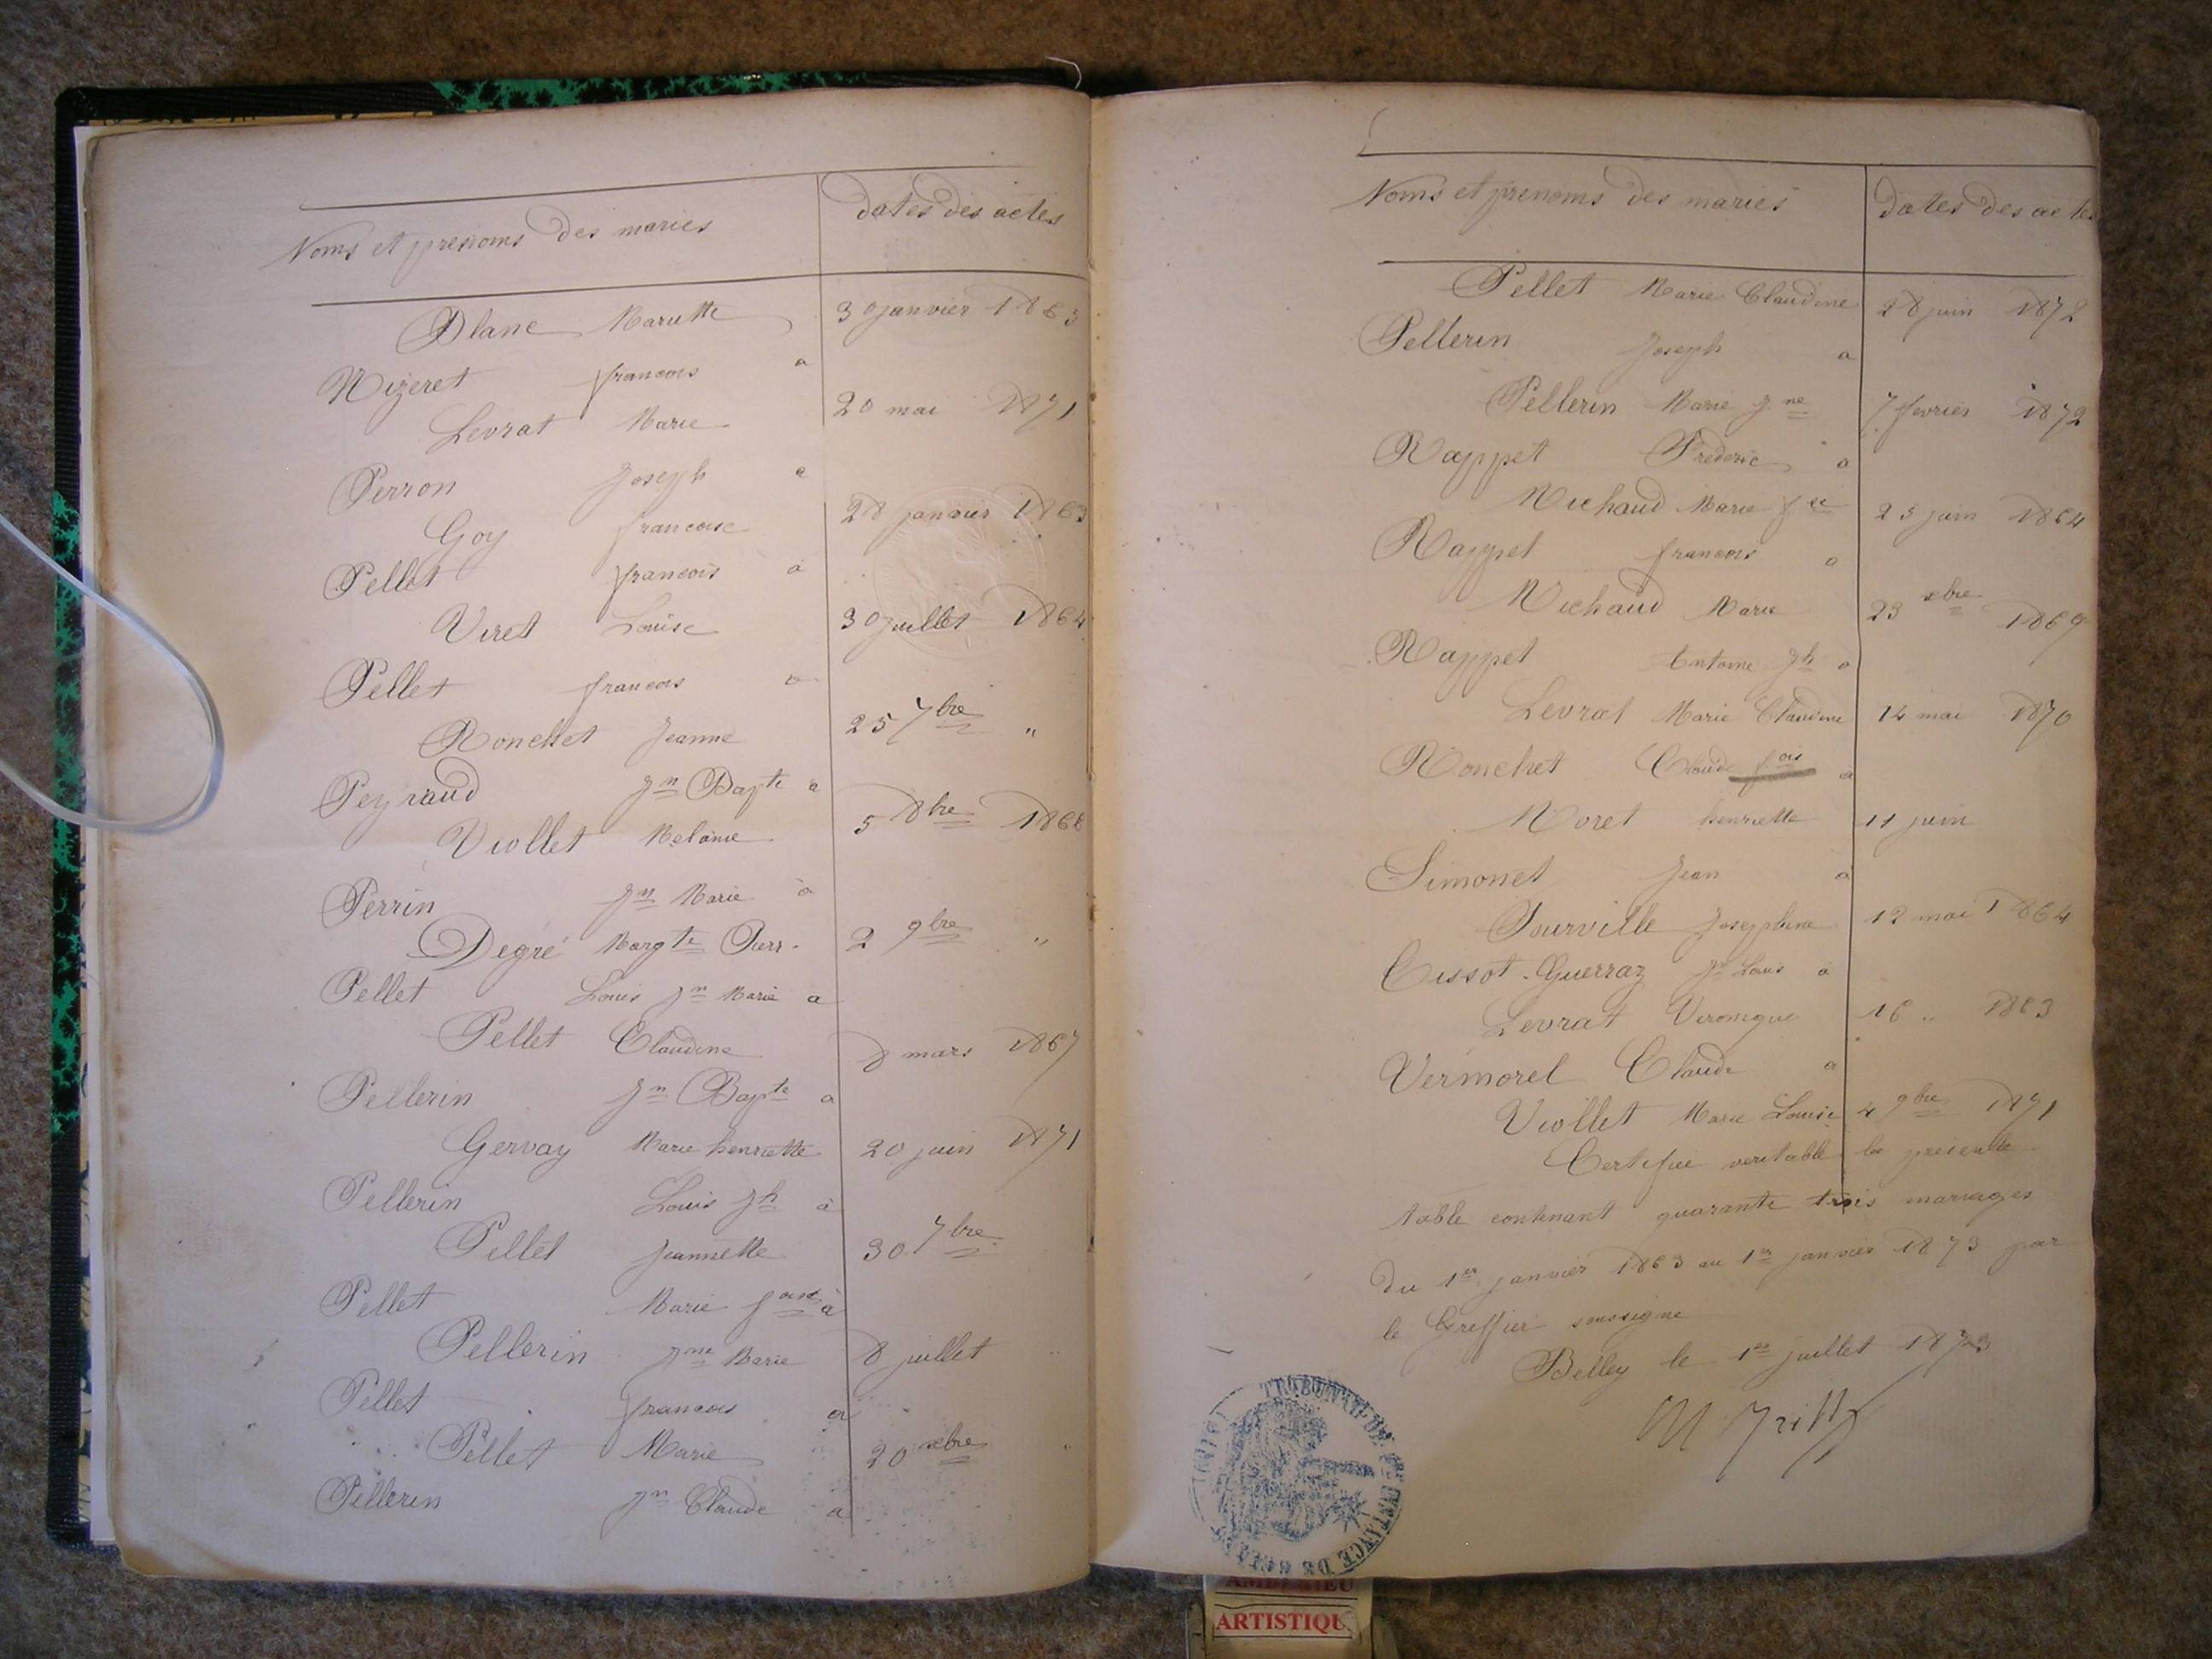 Noms et prenoms des mariés dates des actes
Blanc Mariette 30 janvier 1863
Mizeret francois a
Levrat Marie 20 mai 1871
Perron Joseph a
Goy francoise 28 janvier 1863
Pellet francois à
Viret Louise 30 juillet 1864
Pellet francois a
Ronchet Jeanne 25 7bre "
Peyraud Jn Bapte a
Viollet Melanie 5 8bre 1868
Perrin Jn Marie à
Degré Margte Pierr. 2 9bre "
Pellet Louis Jn Marie a
Pellet Claudine 8 mars 1867
Pellerin Jn Bapte a
Gervay Marie henriette 20 juin 1871
Pellerin Louis Jh à
Pellet Jeannette 30 7bre
Pellet Marie foise à
Pellerin Jne Marie 8 juillet
Pellet francois a
Pellet Marie 20 xbre
Pellerin Jn Claude a
Noms et prenoms des mariés dates des actes
Pellet Marie Claudine 28 juin 1872
Pellerin Joseph a
Pellerin Marie Jne 7 fevrier 1872
Rappet Frederic a
Michaud Marie fse 25 juin 1864
Rappet francois a
Michaud Marie 23 xbre 1869
Rappet Antoine Jh a
Levrat Marie Claudine 14 mai 1870
Ronchet Claude fois a
Moret henriette 11 juin
Simonet Jean a
Tourville Josephine 12 mai 1864
Cissot-Guerraz Jn Louis à
Levrat Veronique 16 " 1863
Vermorel Claude a
Viollet Marie Louise 4 9bre 1871
Certifié veritable la presente
table contenant quarante trois mariages
du 1er janvier 1863 au 1er janvier 1873 par
le Greffier soussigné
Belley le 1er juillet 1873
TRIBUNAL DE 1RE INSTANCE DE BELLEY
ARTISTIQU